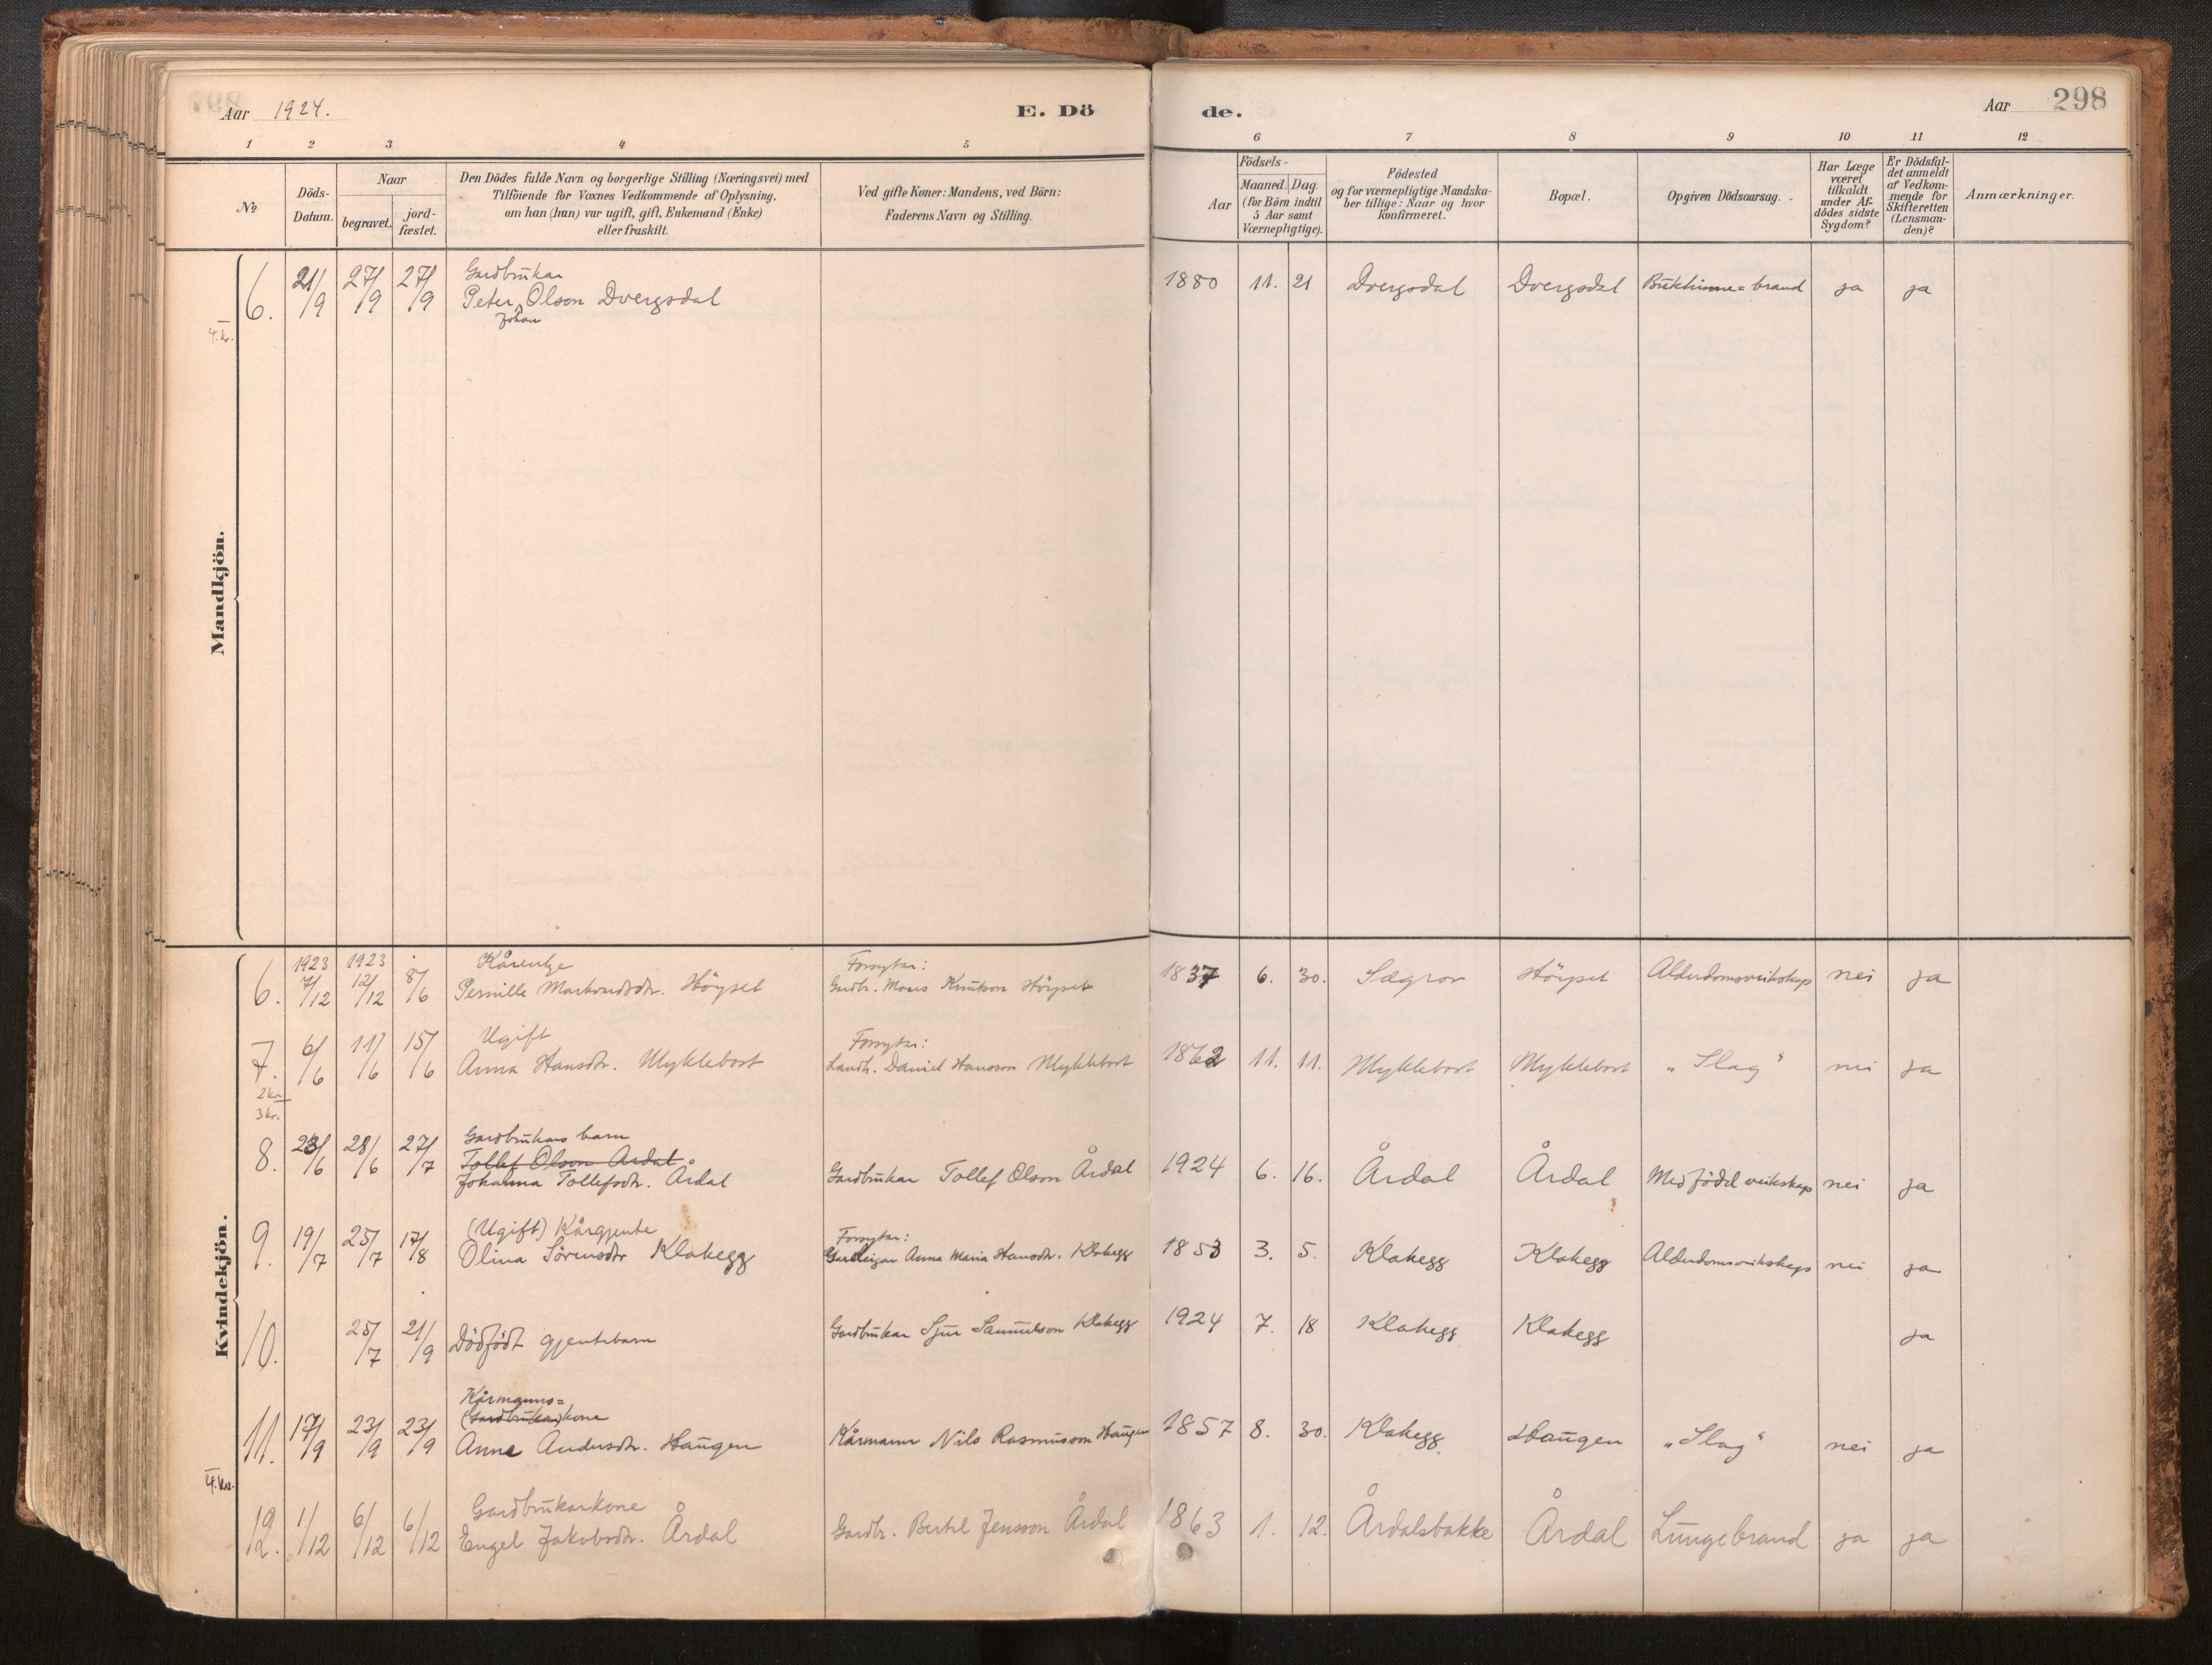 Aar 1924. E. Dö de. Aar 298
1 2 3 4 5 6 7 8 9 10 11 12
No
Döds-Datum.
Naar
begravet. jord-fæstet.
Den Dödes fulde Navn og borgerlige Stilling (Næringsvei) med
Tilföiende for Voxnes Vedkommende af Oplysning,
om han (hun) var ugift, gift, Enkemand (Enke)
eller fraskilt.
Ved gifte Koner: Mandens, ved Börn:
Faderens Navn og Stilling.
Födsels-
Aar Maaned. Dag.
(for Börn indtil
5 Aar samt
Værnepligtige).
Födested
og for værnepligtige Mandska-
ber tillige: Naar og hvor
konfirmeret.
Bopæl.
Opgiven Dödsaarsag.
Har Læge
været
tilkaldt
under Af-
dödes sidste
Sygdom?
Er Dödsfal-
det anmeldt
af Vedkom-
mende for
Skifteretten
(Lensman-
den)?
Anmærkninger.
Mandkjön.
Gardbrukar
6. 21/9 27/9 27/9 Peter Olson Dvergsdal 1880 11. 21 Dvergsdal Dvergsdal Bukhinne=brand ja ja
Johan
4. kr.
Kvindekjön.
1923 1923 Kårenkje Forsytar:
6. 7/12 12/12 8/6 Pernille Markvardsdtr. Höyset Gardbr. Moses Knutson Höyset 1837 6. 30. Sægrov Höyset Alderdomsveikskap nei ja
Ugift Forsytar:
7. 6/6 11/6 15/6 Anna Hansdtr. Myklebost Landh. Daniel Hansson Myklebost 1862 11. 11. Myklebost Myklebost "Slag" nei ja
2 kr.
3 kr.
Gardbrukars barn
Tollef Olson Årdal
8. 23/6 28/6 27/7 Johanna Tollefsdtr. Årdal Gardbrukar Tollef Olson Årdal 1924 6. 16. Årdal Årdal Medfödd veikskap nei ja
(Ugift) Kårgjente Forsytar:
9. 19/7 25/7 17/8 Olina Sörensdtr Klakegg Gardeigar Anna Maria Hansdtr. Klakegg 1853 3. 5. Klakegg Klakegg Alderdomsveikskap nei ja
10. 25/7 21/9 Dödfödt gjentebarn Gardbrukar Sjur Samuelson Klakegg 1924 7. 18 Klakegg Klakegg ja
Kårmanns=
(Gardbrukar)kone
11. 17/9 23/9 23/9 Anne Andersdtr. Haugen Kårmann Nils Rasmusson Haugen 1857 8. 30. Klakegg Haugen "Slag" nei ja
4. kr.
Gardbrukarkone
12. 1/12 6/12 6/12 Engel Jakobsdtr. Årdal Gardbr. Bertel Jensson Årdal 1863 1. 12. Årdalsbakke Årdal Lungebrand ja ja